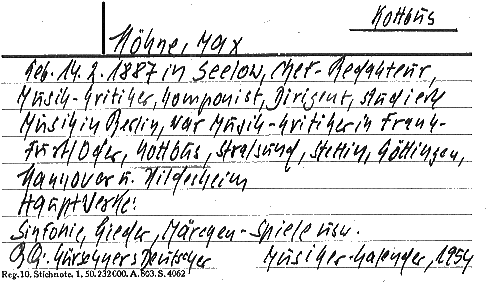 Kottbus
Höhne, Max
Geb. 14.2.1887 in Seelow, Chef-Redakteur,
Musik-Kritiker, Komponist, Dirigent, studierte
Musik in Berlin, war Musik-Kritiker in Frank-
furt/Oder, Kottbus, Stralsund, Stettin, Göttingen,
Hannover u. Hildesheim
Hauptwerke:
Sinfonie, Lieder, Märchen-Spiele usw.
Qu.: Kürschners Deutscher Musiker-Kalender, 1954
Reg. 10. Stichnote. 1. 50. 232000. A. 803. S. 4062